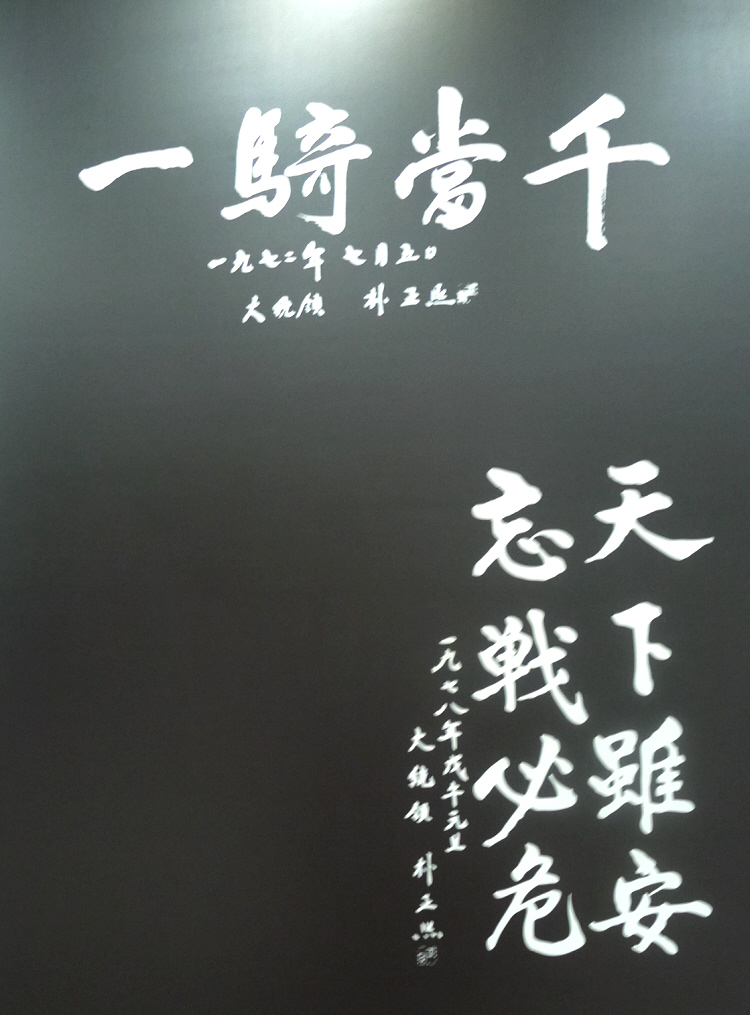 一騎當千
一九七二年 七月五日
大統領 朴正熙
天下雖安
忘戦必危
一九七八年戊午元旦
大統領 朴正熙